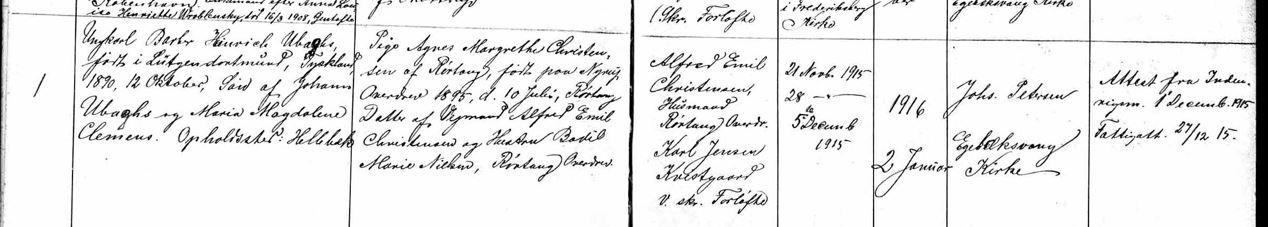 København,
ise Henriette Wroblensky, død 16/3 1908, Gentofte
(Skr. Forlofte
i Frederiksberg
Kirke
Egebæksvang Kirke
1
Ungkarl Barber Heinrich Ubaghs,
født i Lütgendortmund, Tyskland
1890, 12 Oktober, Søn af Johann
Ubaghs og Maria Magdalene
Clemens. Opholdssted: Hellebæk
Pige Agnes Margrethe Christen-
sen af Rørtang, født paa Nyrup
Overdrev 1895, d. 10 Juli, Rørtang
Datter af Alfred Emil
Christensen og Hustru Bodil
Marie Nielsen, Rørtang Overdrev.
Alfred Emil
Christensen,
Husmand
Rørtang Overdr.
Karl Jensen
Kvistgaard
v. skr. Forlofte
21 Novb. 1915
28 — " —
5 Decemb
1915
1916
2 Januar
Johs. Petersen
Egebæksvang
Kirke
Attest fra Inden-
rigsm. 1 Decemb. 1915
Fattigatt. 27/12 15.